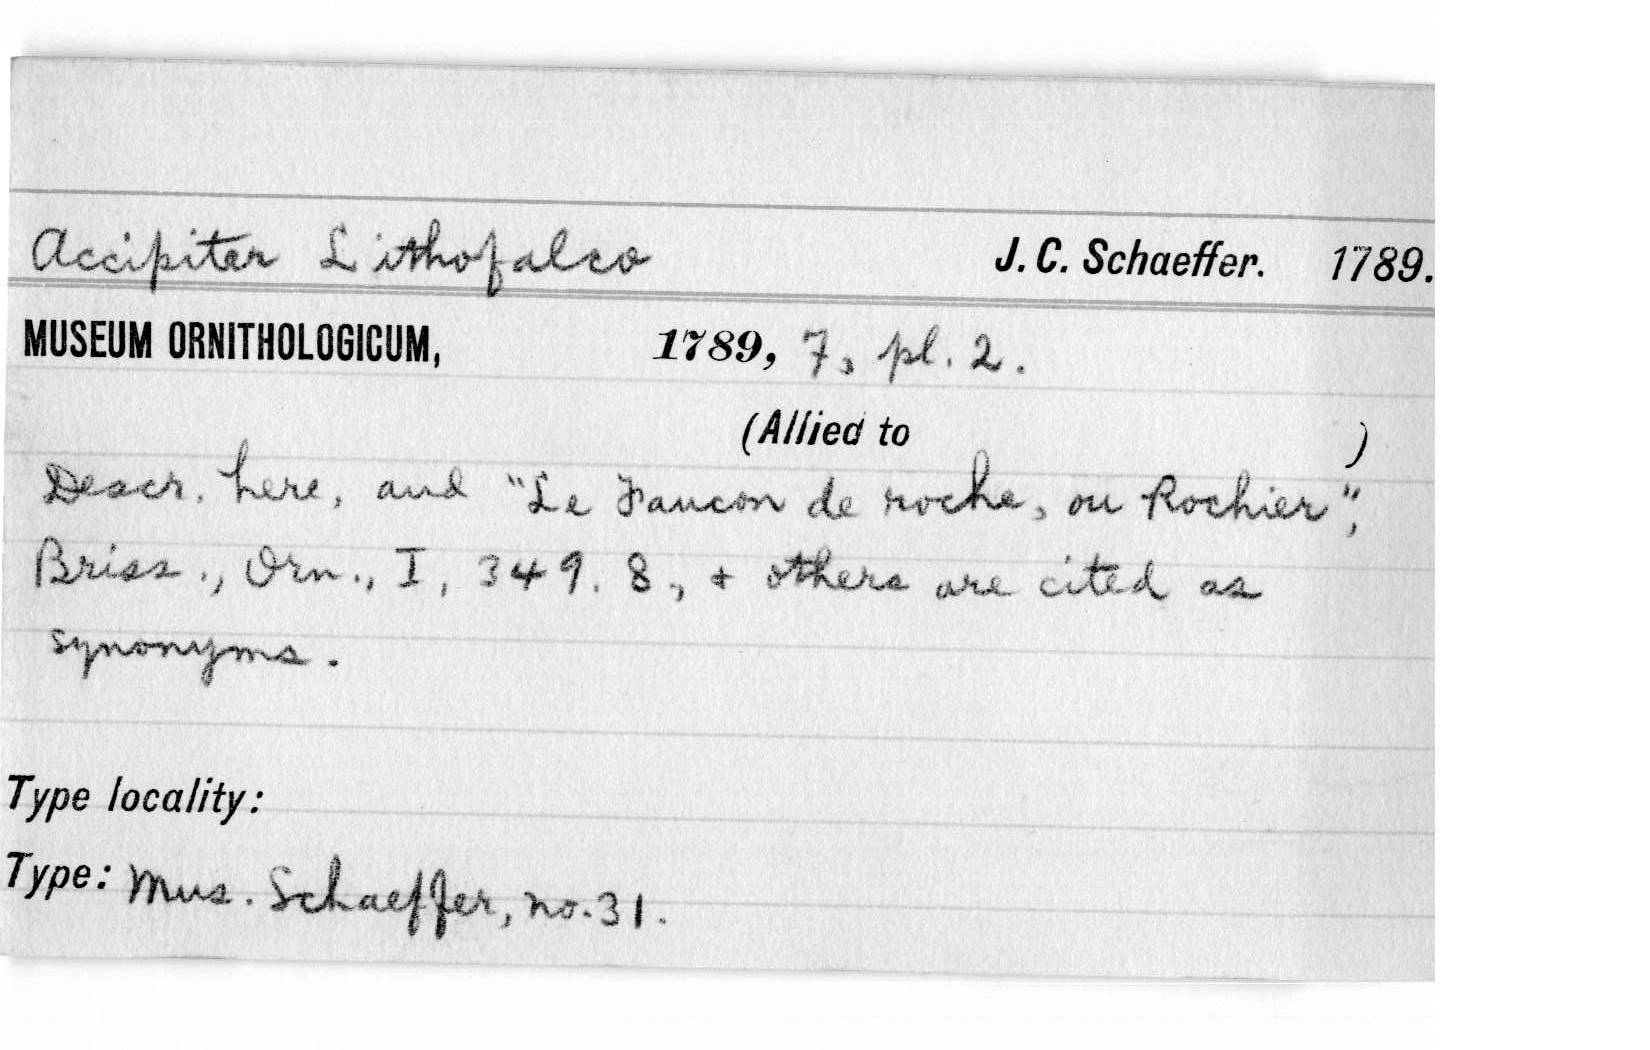 Accipiter Lithofalco J. C. Schaeffer. 1789.
MUSEUM ORNITHOLOGICUM, 1789, 7, pl. 2.
(Allied to )
Descr. here, and "Le Faucon de roche, ou Rochier",
Briss., Orn., I, 349. 8., + others are cited as
synonyms.
Type locality:
Type: Mus. Schaeffer, no. 31.